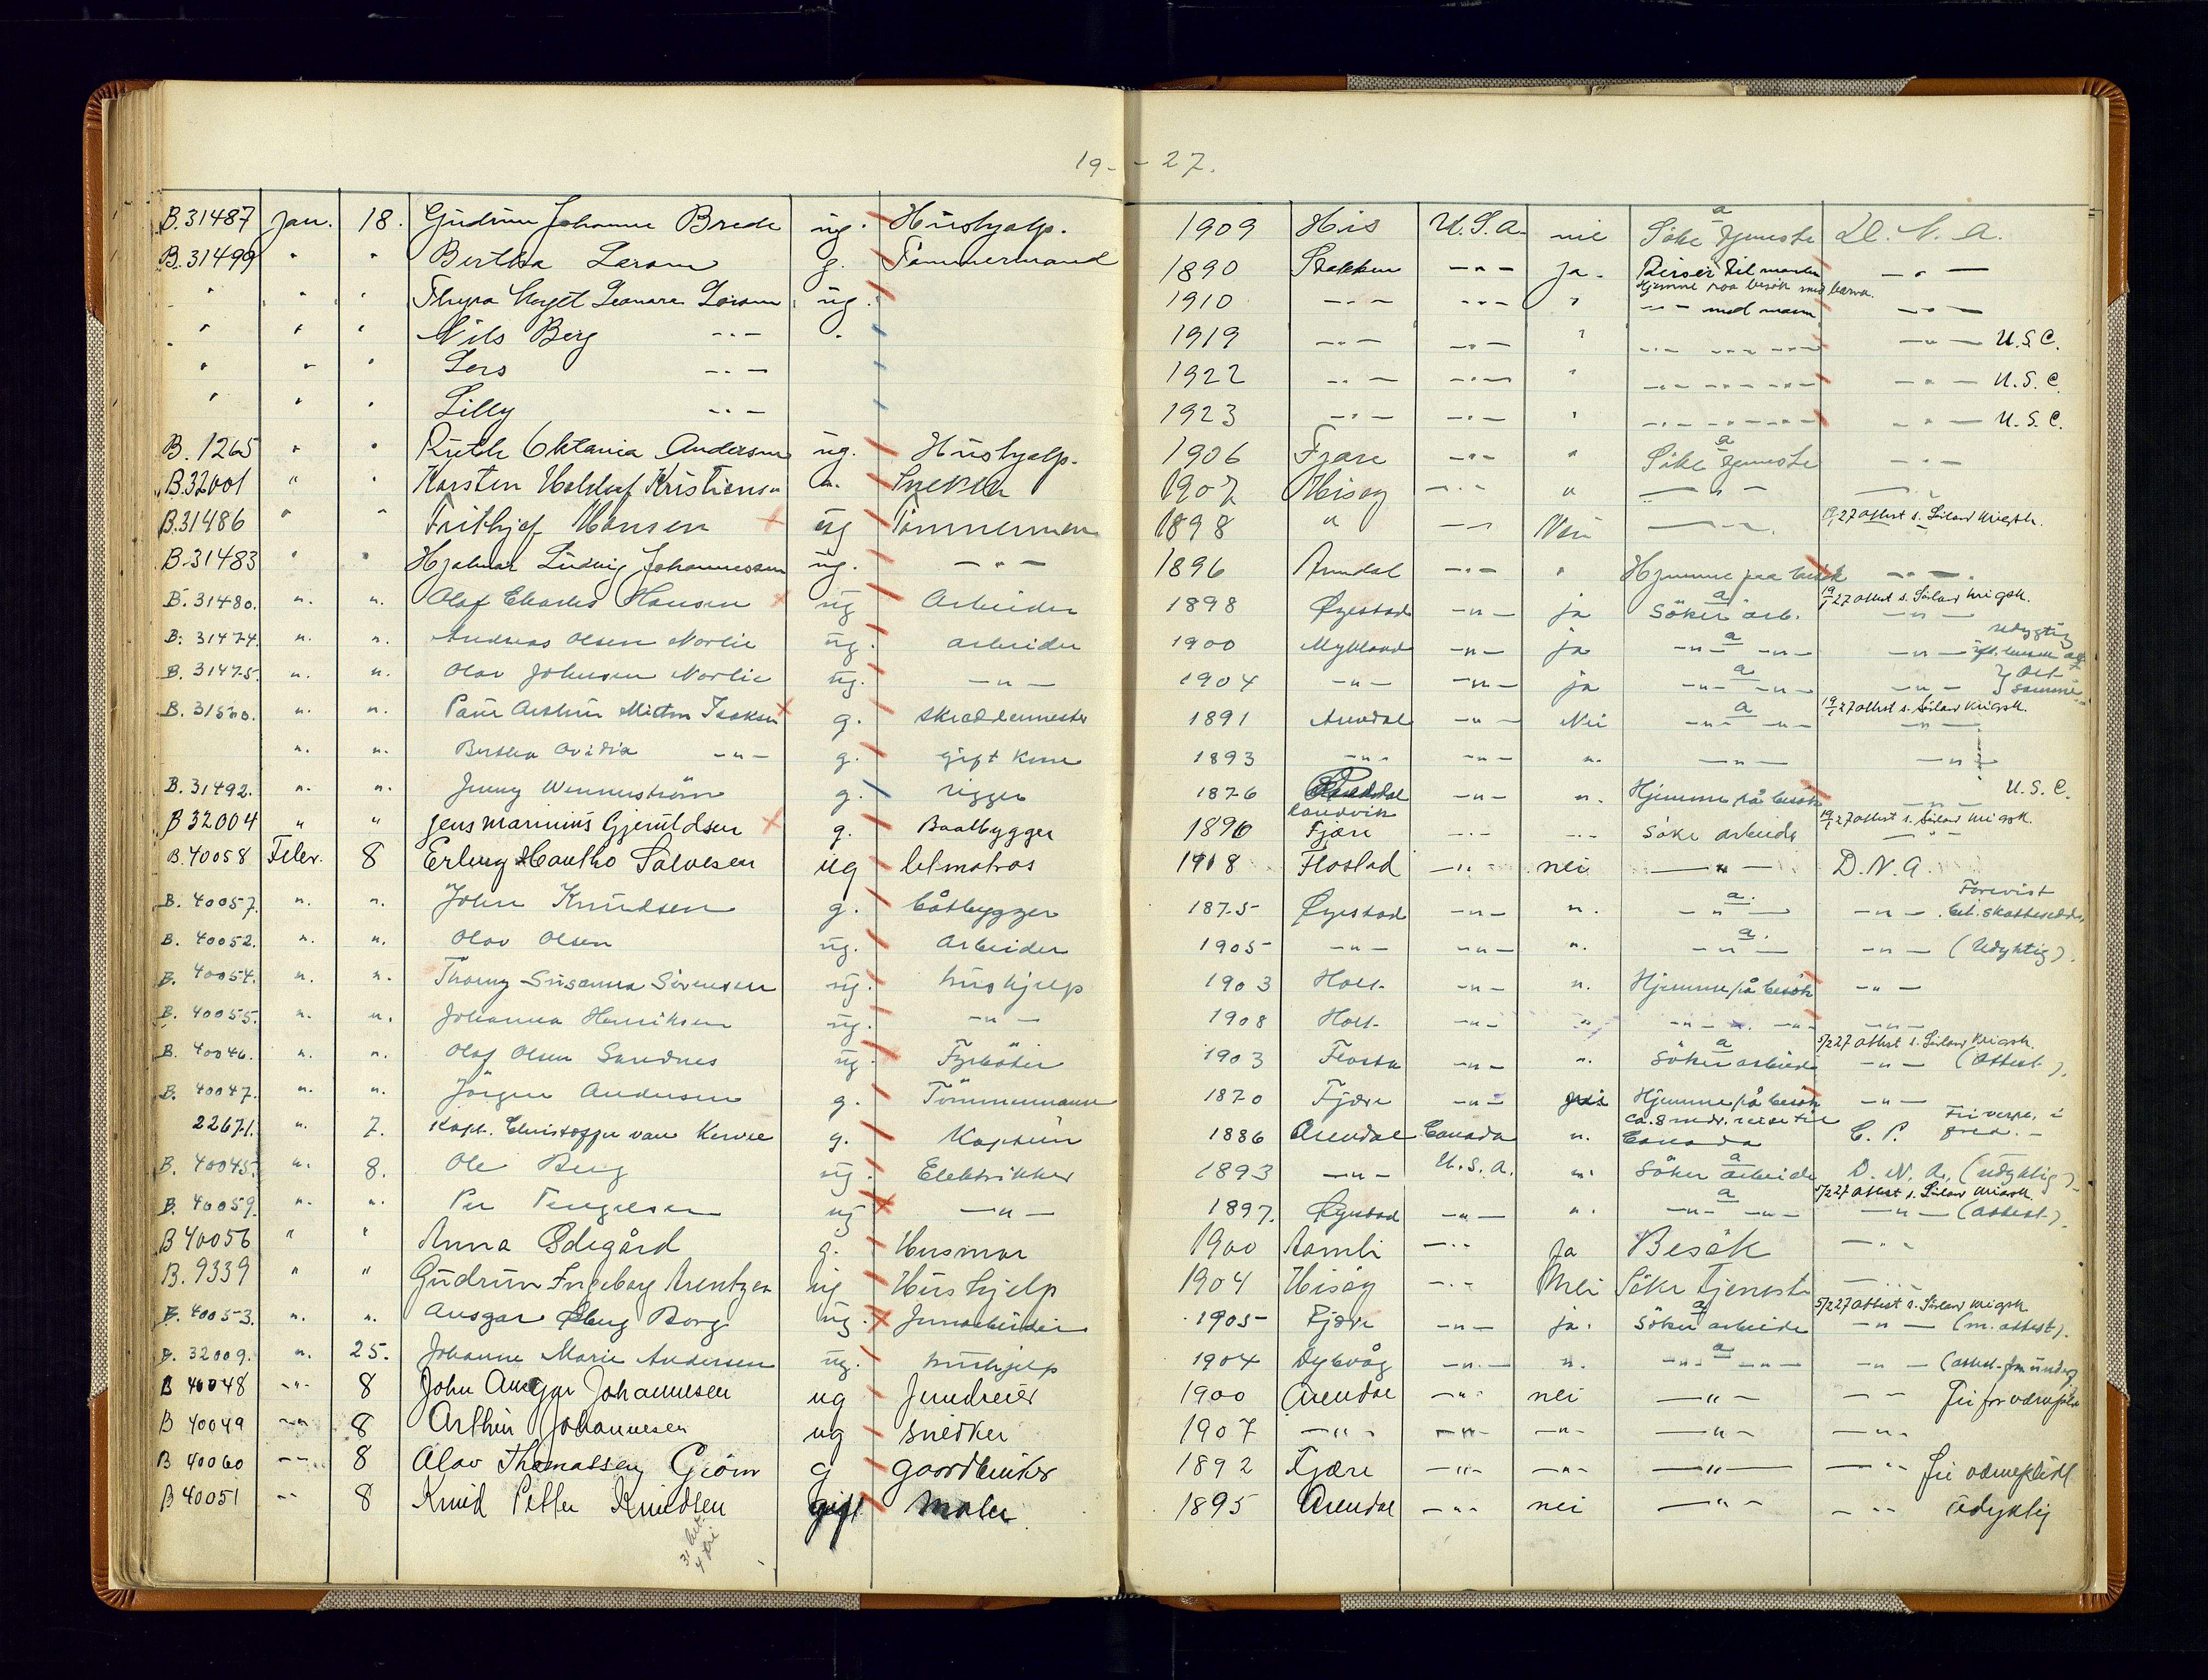 19- - 27.
B.31487 Jan. 18. Gudrun Johanne Brede ug. Hushjælp. 1909 His U.S.A. nei Søke tjeneste a D.N.A.
B.31499 " " Bertha Larsen g. Tømmermand 1890 Stokken -"- Ja. Reiser til manden -"-
Hjemme paa besøk med barna.
" " " Thyra Larsen ug. 1910 -"- -"- " -"- med mann -"-
" " " Nils Berg -"- 1919 -"- -"- " -"- -"- -"- -"- U.S.C.
" " " Lers -"- 1922 -"- -"- " -"- -"- -"- -"- U.S.C.
" " " Lilly -"- 1923 -"- -"- " -"- -"- -"- -"- U.S.C.
B.1265 " " Ruth Oktavia Andersen ug. Hushjælp. 1906 Fjære -"- " Søke tjeneste a -"-
B.32001 " " Karsten Kristiansen u. Snekker 1907 Hisøy -"- " -"- -"-
B.31486 " " Frithjof Hansen x ug Tømmerman 1898 " -"- Nei -"- 19/1 27 attest s. Sørlan krigsk.
B.31483 " " Hjalmar Ludvig Johannessen ug. -"- 1896 Arendal -"- " Hjemme paa besøk -"-
B.31480. n. n. Olaf Charles Hansen x ug Arbeider 1898 Øyestad -"- ja Söker arb. a 19/1 27 attest s. Sørlan krigsk. -"-
B.31474. n. n. Andreas Olsen Norlie ug. arbeider 1900 Mykland -"- ja -"- a -"- -"- udygtig
B.31475. n. n. Olav Johnsen Norlie ug. -"- 1904 -"- -"- ja -"- a -"- -"- samme
B.31500. n. n. Paul Arthur Milton Isaksen x g. skræddermester 1891 Arendal -"- Nei -"- a -"- 19/1 27 attest s. Sørlan krigsk. -"-
n. n. Bertha Ovidia -"- g. gift kone 1893 -"- -"- n. -"- -"-
B.31492. n. n. Jenny Wennerström g. rigger 1876 Landvik -"- n. Hjemme på besök -"- U.S.C.
B 32004 " " Jens Marinius Gjeruldsen x g. Baatbygger 1896 Fjære -"- -"- söke arbeide 19/1 27 attest s. Sørlan krigsk. -"-
B.40058 Febr. 8 Erling Hartho Salvesen ug letmatros 1908 Flostad -"- nei -"- D.N.A.
B.40057. n. n. John Knudsen g. båtbygger 1875 Øyestad -"- n. -"- a. -"- Forevist bet. skatteseddel
B.40052. n. n. Olav Olsen ug. Arbeider 1905 -"- -"- n. -"- a. -"- (Udyktig).
B.40054. n. n. Thorny Susanna Sörensen ug. hushjelp 1903 Holt. -"- n. Hjemme på besök -"-
B.40055. n. n. Johanna Henriksen ug. -"- 1908 Holt. -"- n. -"- -"- -"-
B.40046. n. n. Olaf Olsen Sandnes ug. Fyrböter 1903 Flosta -"- n. Söker arbeide a 5/2 27 attest s. Sørlan krigsk. -"- (attest).
B.40047. n. n. Jörgen Andersen g. Tömmermann 1870 Fjære -"- Hjemme på besök -"-
22671. n. 7. Kapt. Christoffer van Kervel g. Kaptein 1886 Arendal Canada n. ca. 8 mdr. reise til Canada C.P. Fri vernepl. i fred.
B.40045. n. 8. Ole Berg ug. Elektrikker 1893 -"- U.S.A. n. Söker arbeide a D.N.A. (udyktig).
B.40059. n. n. Per Tengelsen ug x -"- 1897. Øyestad -"- n. -"- a -"- 5/2 27 attest s. Sørlan krigsk. -"- (attest).
B 40056 " " Anna Ødegård g. Husmor 1900 Aamli -"- Ja Besøk -"-
B.9339 " " Gudrun Ingeborg Arentzen ug Hushjelp 1904 Hisøy -"- Nei Søke tjeneste -"-
B.40053. n. n. Ansgar Borg ug. x Jernarbeider 1905 Fjære -"- ja. Söker arbeide a 5/2 27 attest s. Sørlan krigsk -"- (m. attest).
B.32009. n. 25. Johanne Marie Andersen ug. hushjelp 1904 Dybvåg -"- n. -"- a -"- -"-
B 40048 -"- 8 John Ansgar Johannesen ug Jerndreier 1900 Arendal -"- nei -"- -"- Fri for vernepl.
B 40049 -"- 8 Arthur Johannesen ug snedker 1907 -"- -"- -"- -"- -"-
B 40060 -"- 8 Olav Thomassen Gröm g gaardbruker 1892 Fjære -"- -"- -"- -"- fri vernepligt
B 40051 -"- 8 Knud Petter Knudsen gift maler 1895 Arendal -"- nei -"- -"- udyktig